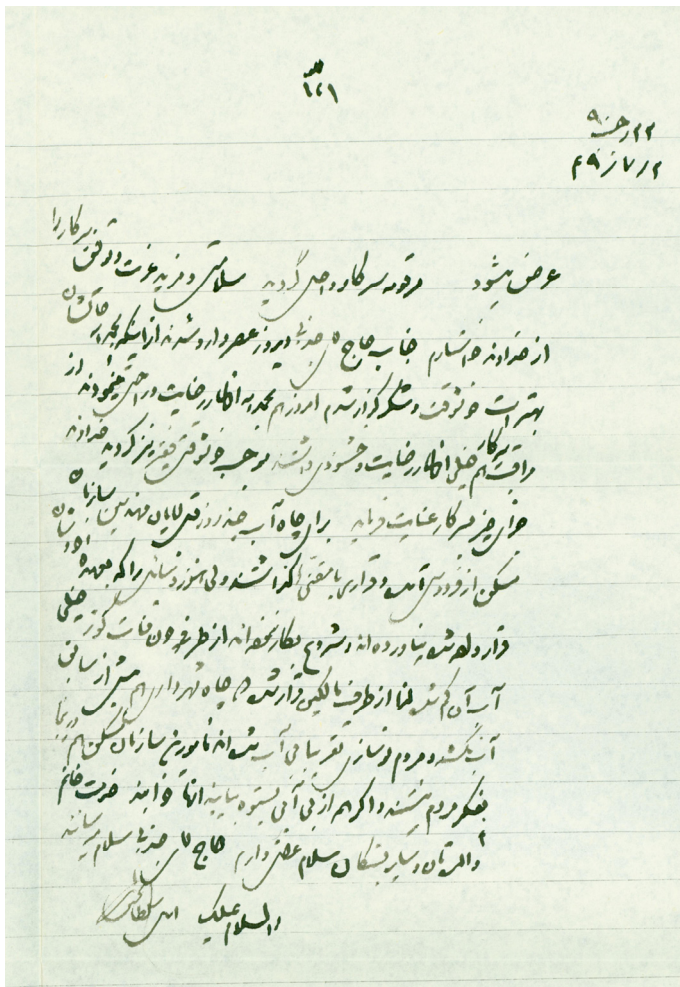 ۱۲۱
۲۲ رجب ۹۰
۲ / ۷ / ۴۹
عرض میشود مرقومه سرکار واصل گردید سلامتی و مزید عزت و توفیق سرکار را
از خداوند خواستارم جناب حاج جذبی دیروز عصر وارد شدند از اینکه بحمدالله حالشان
بهتر است خوشوقت و شکرگزار شدم امروز هم بحمدالله اظهار رضایت و راحتی مینمودند از
مراقبت سرکار هم خیلی اظهار رضایت و خشنودی داشتند موجب خوشوقتی فقیر نیز گردید خداوند
جزای خیر بسرکار عنایت فرماید برای چاه آب چند روز قبل آقایان مهندسین سازمان
مسکن از فردوس آمده و قراری با مقنی ها گذاشتند ولی هنوز وسائلی را که بعهده خودشان
قرار داده شده نیاورده اند و شروع بکار نکرده اند از طرفی چون قنات کوثر خیلی
آب آن کم شده لذا از طرف مالکین قرار شده چاه شهرداری هم بیش از سابق
آب نکشد و مردم نوسازی تقریبا بی آب شده اند مأمورین سازمان مسکن هم
بفکر مردم نیستند و اگر هم از بی آبی بستوه بیایند خدمت خانم
والده تان و سایر بستگان سلام مخلصی دارم حاج جذبی سلام میرسانند
والسلام علیک